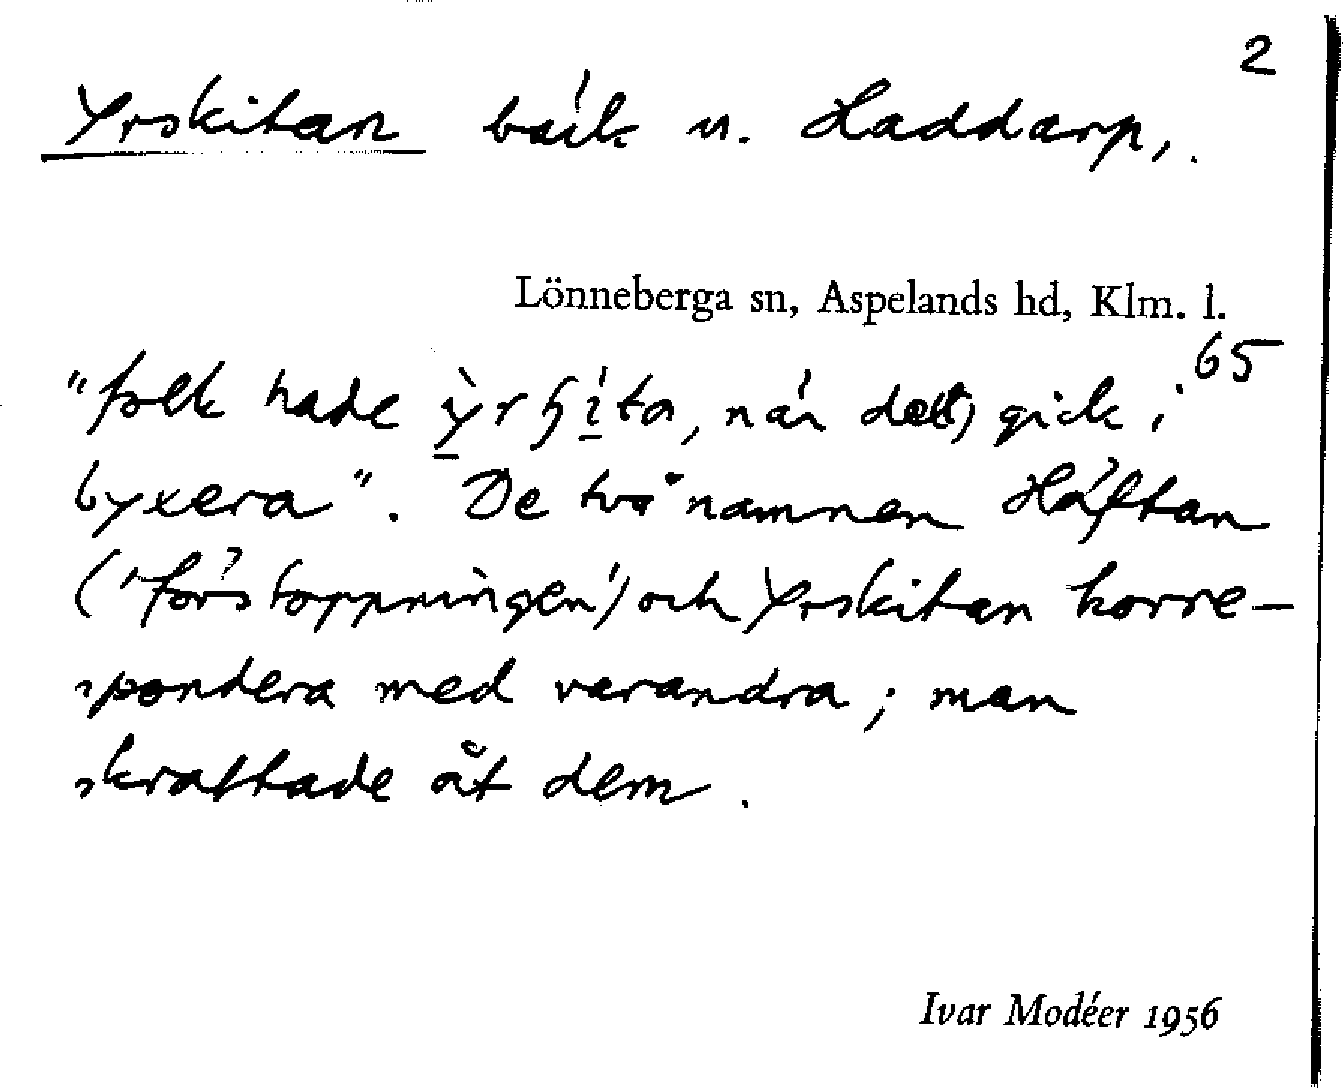 2
Yrskitan bäck n. Haddarp,.
Lönneberga sn, Aspelands hd, Klm. l.
65
"folk hade ỳrɧi̇ta, när det) gick i
byxera". De två namnen Häftan
('förstoppningen') och Yrskitan korre-
spondera med varandra; man
skrattade åt dem.
Ivar Modéer 1956